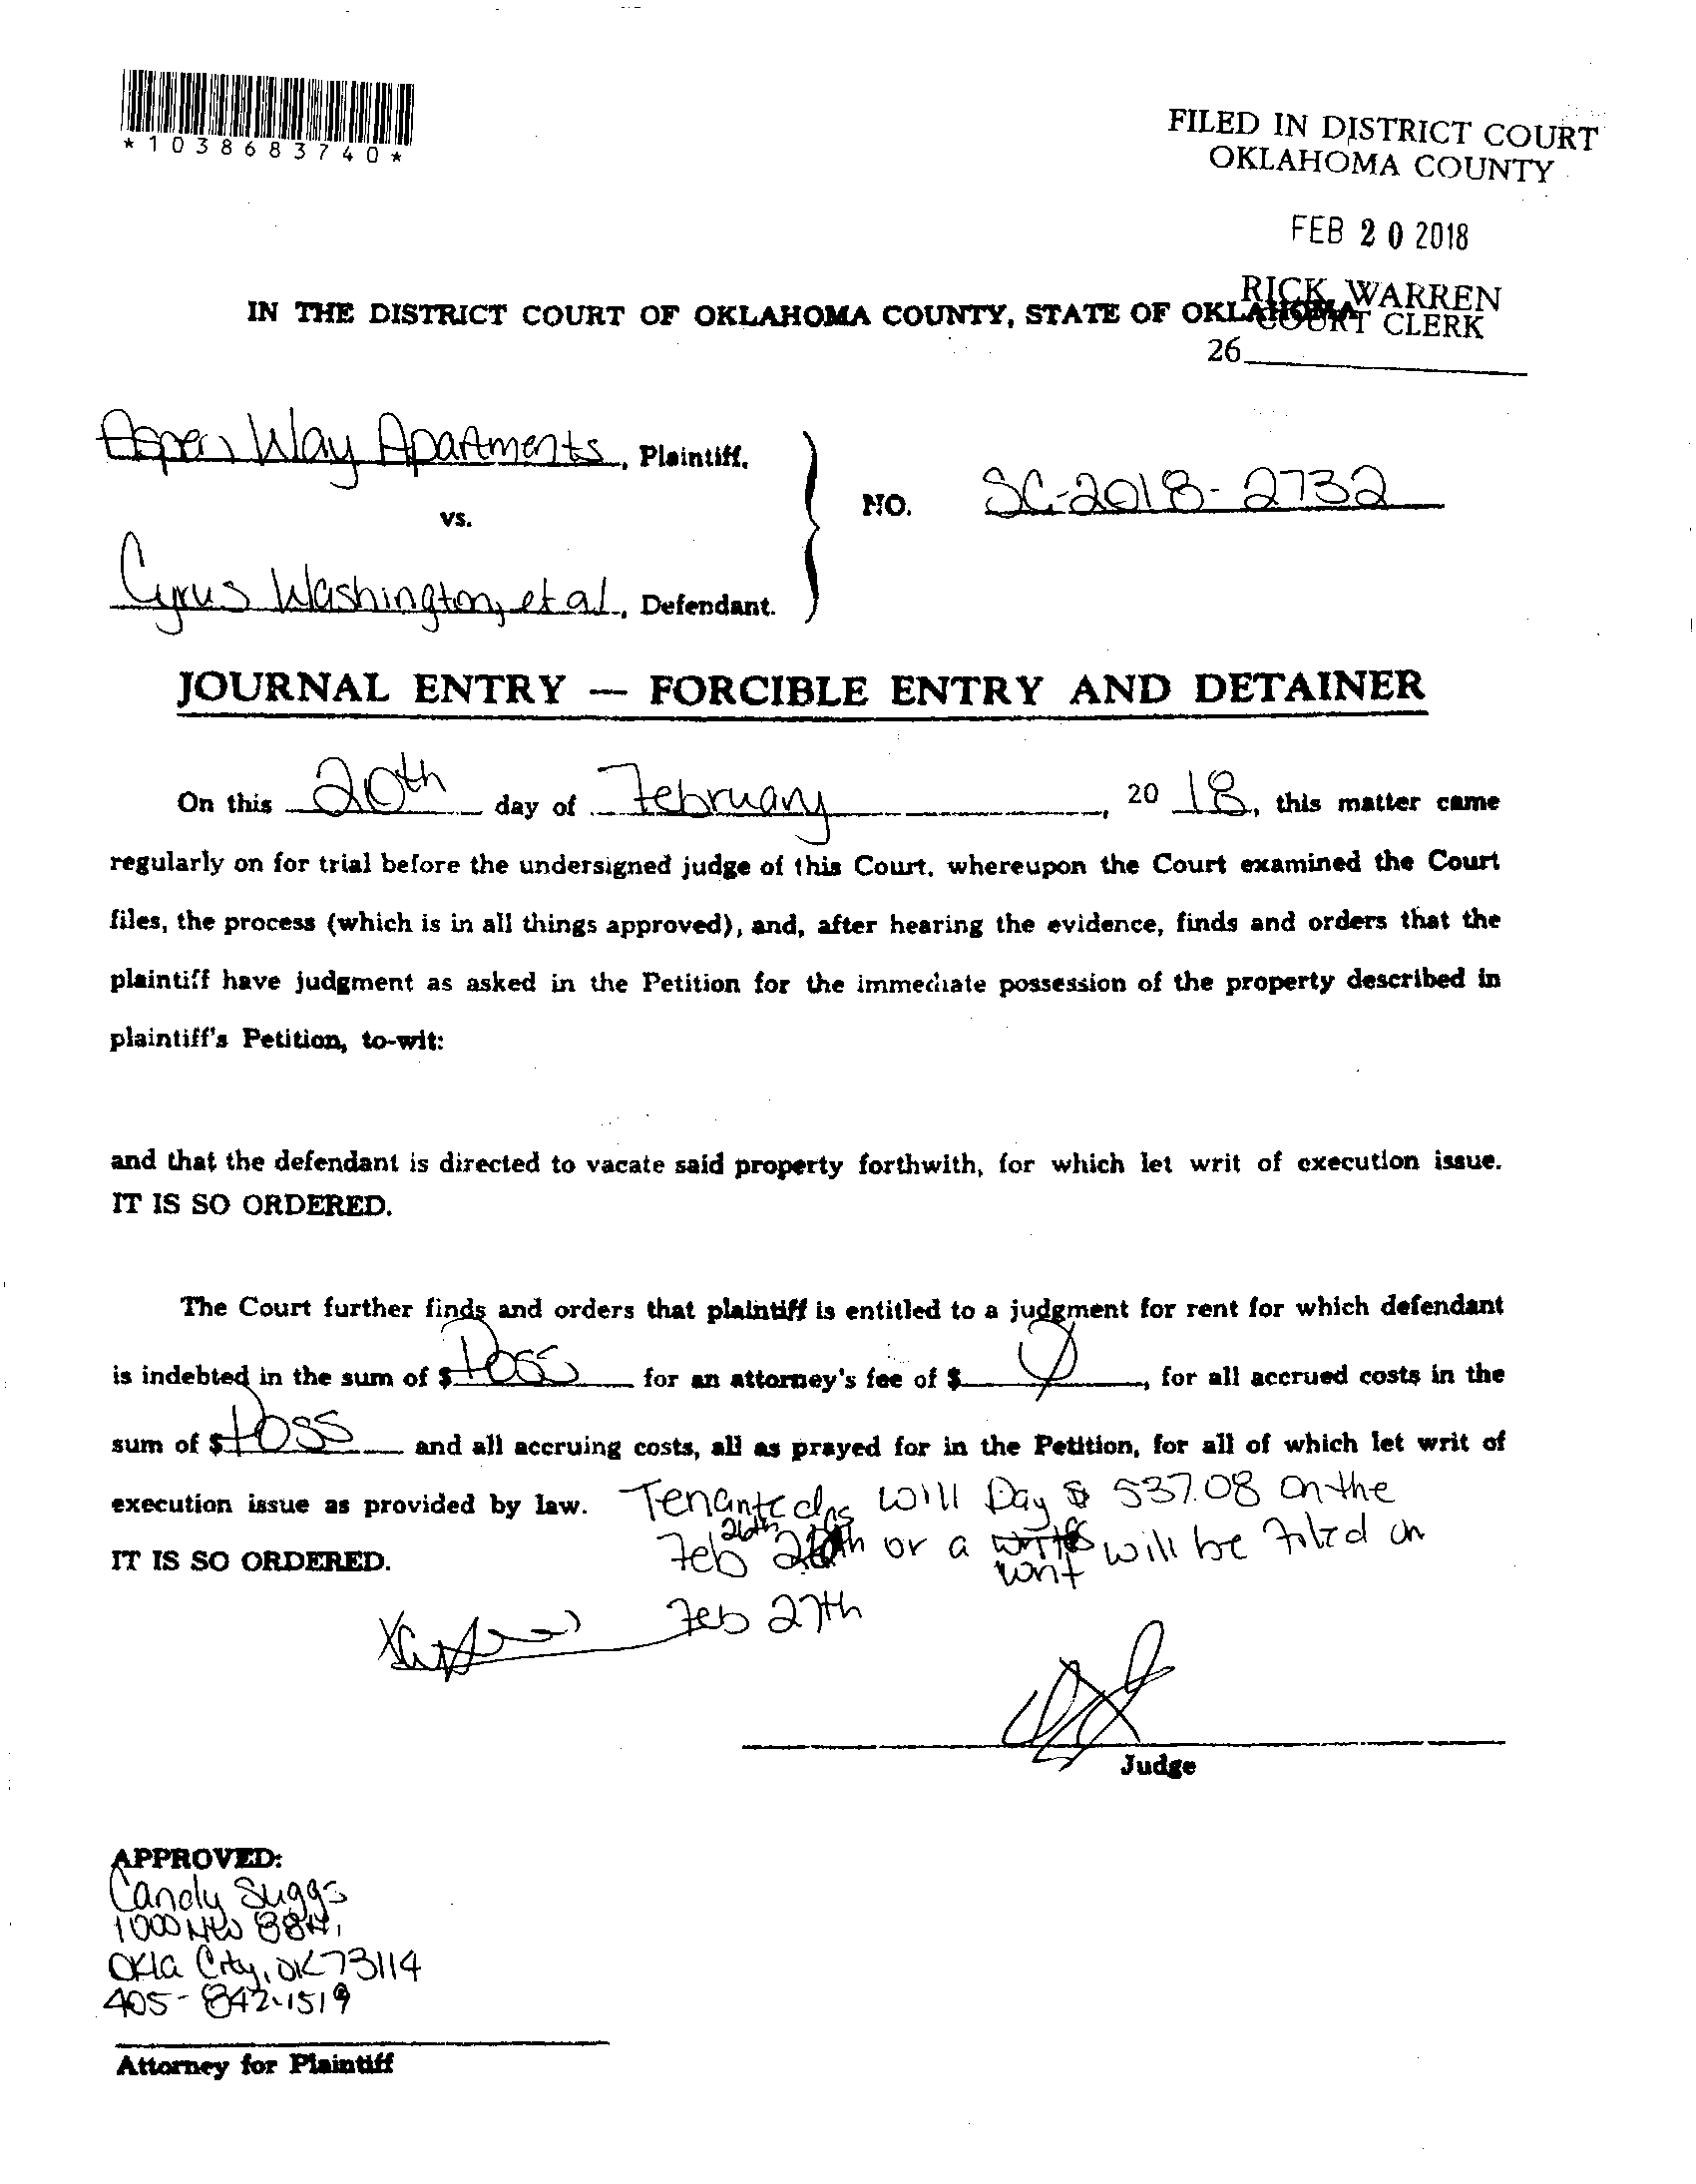 *1038683740*
FILED IN DISTRICT COURT
OKLAHOMA COUNTY
FEB 20 2018
RICK WARREN
COURT CLERK
26
IN THE DISTRICT COURT OF OKLAHOMA COUNTY, STATE OF OKLAHOMA
Aspen Way Apartments, Plaintiff,
vs.
NO. SC-2018-2732
Cyrus Washington, et al., Defendant.
JOURNAL ENTRY — FORCIBLE ENTRY AND DETAINER
On this 20th day of February, 20 18, this matter came
regularly on for trial before the undersigned judge of this Court, whereupon the Court examined the Court
files, the process (which is in all things approved), and, after hearing the evidence, finds and orders that the
plaintiff have judgment as asked in the Petition for the immediate possession of the property described in
plaintiff's Petition, to-wit:
and that the defendant is directed to vacate said property forthwith, for which let writ of execution issue.
IT IS SO ORDERED.
The Court further finds and orders that plaintiff is entitled to a judgment for rent for which defendant
is indebted in the sum of $ Poss for an attorney's fee of $ , for all accrued costs in the
sum of $ Poss and all accruing costs, all as prayed for in the Petition, for all of which let writ of
execution issue as provided by law. will Pay $ 537.08 on the
IT IS SO ORDERED. Feb 26th or a writ will be filed on
Feb 27th
Judge
APPROVED:
Candy Suggs
1000 NW 88th,
Okla City, OK 73114
405-842-1519
Attorney for Plaintiff